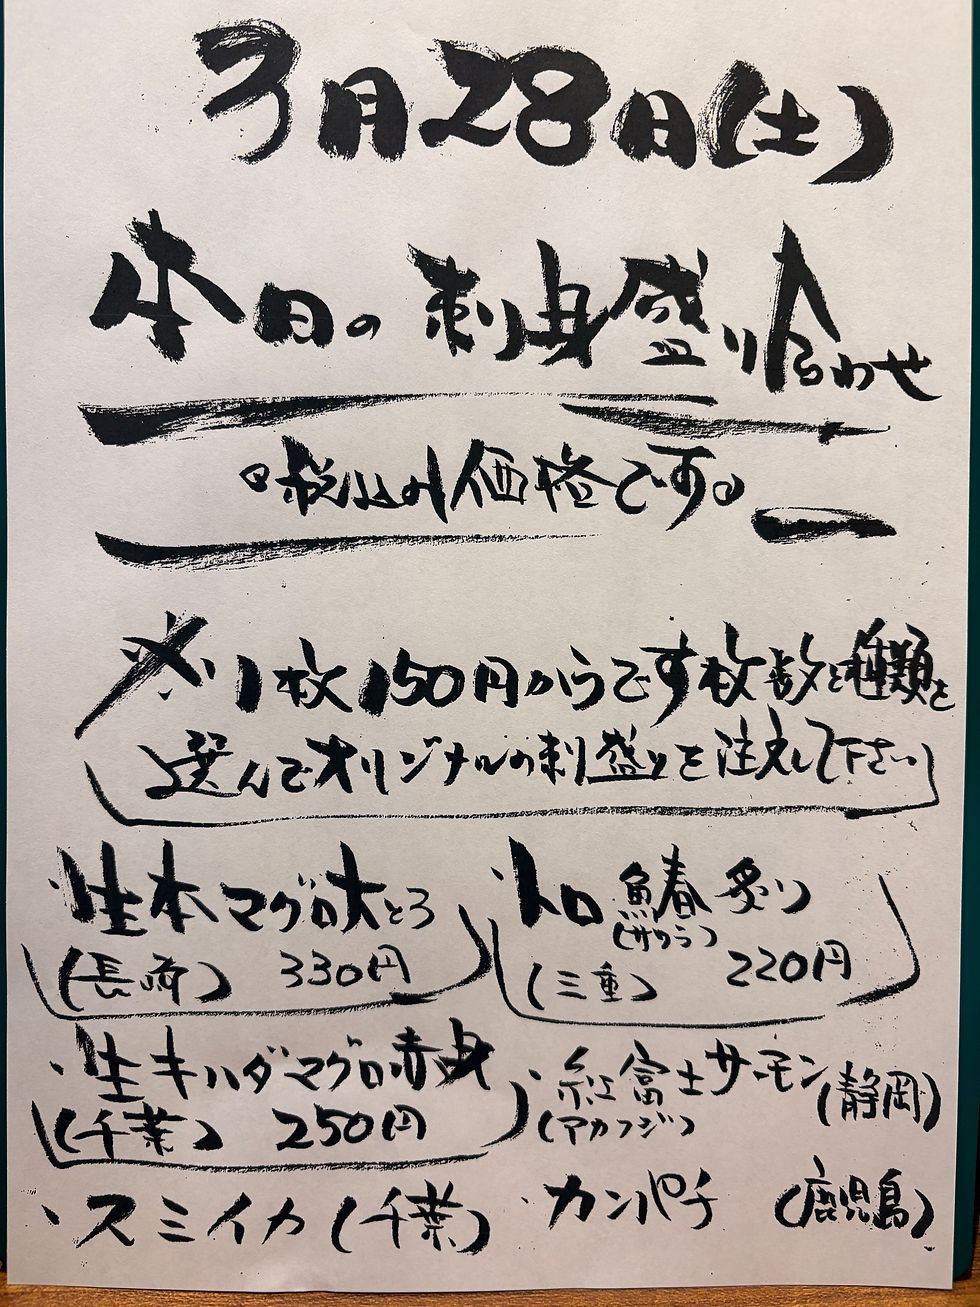 3月28日(土)
本日の刺身盛り合わせ
『税込み価格です』
※1枚150円からです枚数と種類を
選んでオリジナルの刺盛りを注文して下さい
・生本マグロ大とろ
(長崎) 330円
・トロ鰆炙り
(サワラ)
(三重) 220円
・生キハダマグロ赤身
(千葉) 250円
・紅富士サーモン(静岡)
(アカフジ)
・スミイカ(千葉)
・カンパチ (鹿児島)